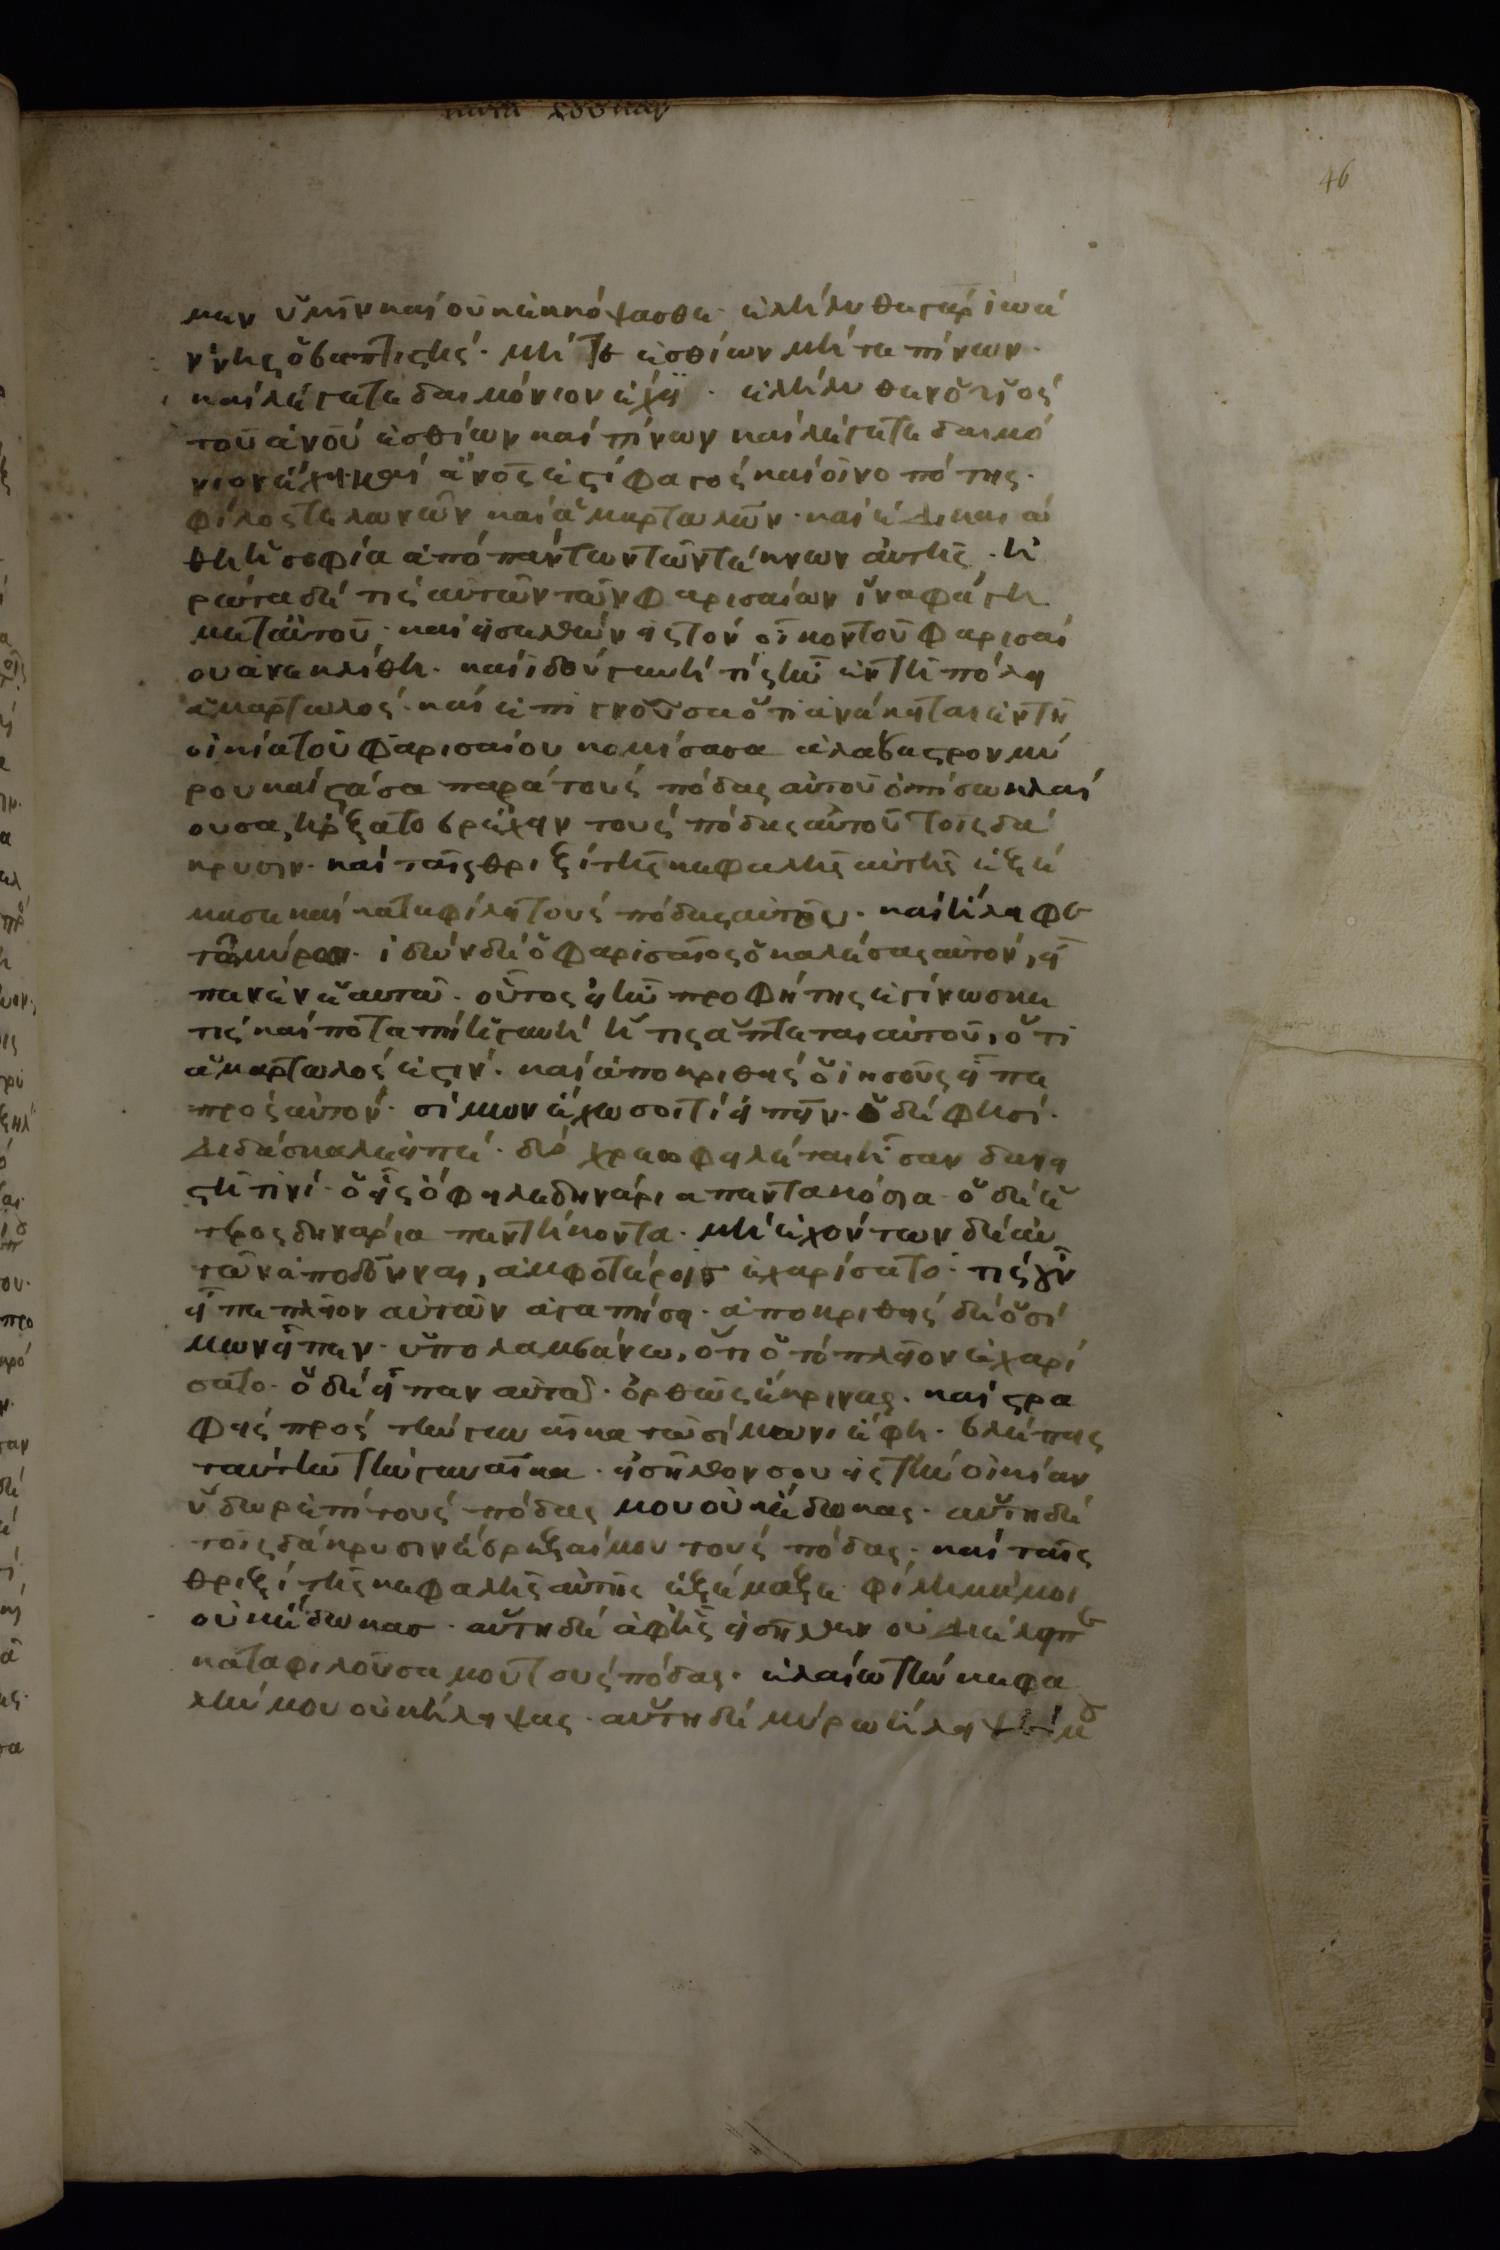 κατὰ λουκαν
46
μεν ὑμῖν καὶ οὐκ ἐκκόψασθε· ἐλήλυθε γὰρ ἰωά
ννης ὁ βαπτιστής· μήτε ἐσθίων μήτε πίνων·
καὶ λέγετε δαιμόνιον ἔχει· ἐλήλυθεν ὁ υἱος
τοῦ ἀνοῦ ἐσθίων καὶ πίνων καὶ λέγετε δαιμό
νιον ἔχει· ἰδού ἄνος ἐστί φαγος καὶ οἰνοπότης·
φίλος τελωνῶν καὶ ἁμαρτωλῶν· καὶ ἐδικαιώ
θη ἡ σοφία ἀπό πάντων τῶν τέκνων ἀυτῆς. ἠ
ρώτα δέ τις αὐτῶν τῶν φαρισαίων ἵνα φάγη
μετ' αὐτοῦ· καὶ εἰσελθών εἰς τόν οἶκον τοῦ φαρισαί
ου ἀνεκλίθη· καὶ ἰδού γυνή τίς ἦν ἐν τῆ πόλει
ἁμαρτωλος· καὶ ἐπιγνοῦσα ὅτι ἀνάκειται ἐν τῆ
οἰκία τοῦ φαρισαίου κομίσασα ἀλάβαστρον μύ
ρου καὶ στάσα παρά τούς πόδας αὐτοῦ ὀπίσω κλαί
ουσα, ἤρξατο βρέχειν τούς πόδας αὐτοῦ τοῖς δά
κρυσιν· καὶ ταῖς θριξί τῆς κεφαλῆς αὐτῆς ἐξέ
μασε καὶ κατεφίλει τούς πόδας αὐτοῦ· καὶ ἤλειφε
τῶ μύρω· ἰδών δέ ὁ φαρισαῖος ὁ καλέσας αὐτόν, εἶ
πεν ἐν ἑαυτῶ· οὗτος εἰ ἦν προφήτης ἐγίνωσκε
τίς καὶ ποταπή ἡ γυνή ἥτις ἅπτεται αὐτοῦ, ὅτι
ἁμαρτωλός ἐστιν· καὶ ἀποκριθείς ὁ ἰησοῦς εἶπε
πρός αὐτόν· σίμων ἔχω σοι τί εἰπεῖν· ὁ δέ φησί·
διδάσκαλε εἰπέ· δύο χρεωφειλέται ἦσαν δανει
στῆ τινί· ὁ εἷς ὀφειλε δηνάρια πεντακόσια· ὁ δέ ἕ
τερος δηναρια πεντήκοντα· μή ἐχόντων δέ αὐ
τῶν ἀποδοῦναι, ἀμφοτέροις ἐχαρίσατο· τις οὖν
εἶπε πλεῖον αὐτῶν ἀγαπήσει· ἀποκριθείς δέ ὁ σί
μων εἶπεν· ὑπολαμβάνω, ὅτι ὁ τό πλεῖον ἐχαρί
σατο· ὁ δέ εἶπεν αὐτῶ· ὀρθῶς ἔκρινας· καὶ στρα
φείς πρός τήν γυναῖκα τῶ σίμωνι ἔφη· βλέπεις
ταύτην τήν γυναῖκα· εἰσῆλθον σου εἰς τήν οἰκίαν
ὕδωρ ἐπί τούς πόδας μου οὐκ ἔδωκας· αὕτη δέ
τοῖς δάκρυσιν ἔβρεξαί μου τούς πόδας· καὶ ταῖς
θριξί τῆς κεφαλῆς αὐτῆς ἐξέμαξε· φίλημά μοι
οὐκ ἔδωκας· αὕτη δέ ἀφ' ἧς εἰσῆλθεν οὐ διέλειπε
καταφιλοῦσα μου τούς πόδας· ἐλαίω τήν κεφα
λήν μου οὐκ ἤλειψας· αὕτη δέ μύρω ἤλειψέ μου